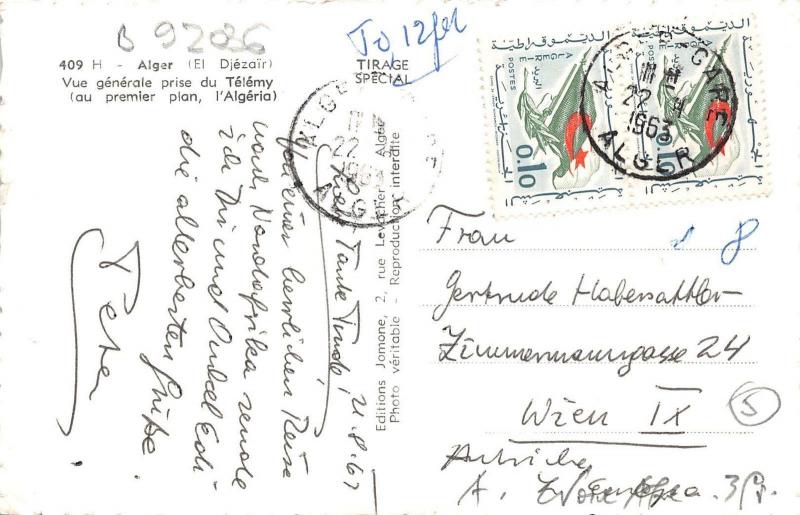 B 92086
To 12 fer
409 H - Alger (El Djézaïr)
Vue générale prise du Télémy
(au premier plan, l'Algéria)
TIRAGE
SPÉCIAL
Tante Trude! 21.8.63
Von einer herrlichen Reise
nach Nordafrika sende
ich Dir und Onkel Edi
die allerbesten Grüße
Peter
Editions Jomone, 2, rue Alger
Photo véritable - Reproduction interdite
ALGER
22
1963
ALGER
ALGER GARE
22
1963
ALGER
ALGERIE
POSTES
0.10
0.10
8
Frau
Gertrude Habersattler
Zimmermanngasse 24
Wien IX
5
Autriche
Europa